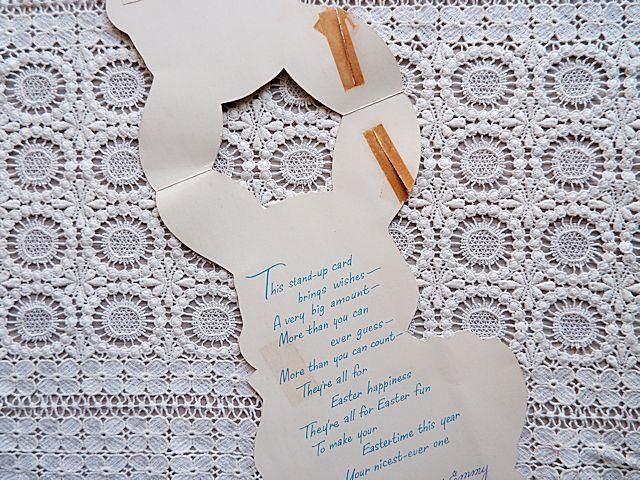 This stand-up card
brings wishes—
A very big amount—
More than you can
ever guess—
More than you can count—
They're all for
Easter happiness
They're all for Easter fun
To make your
Eastertime this year
Your nicest-ever one